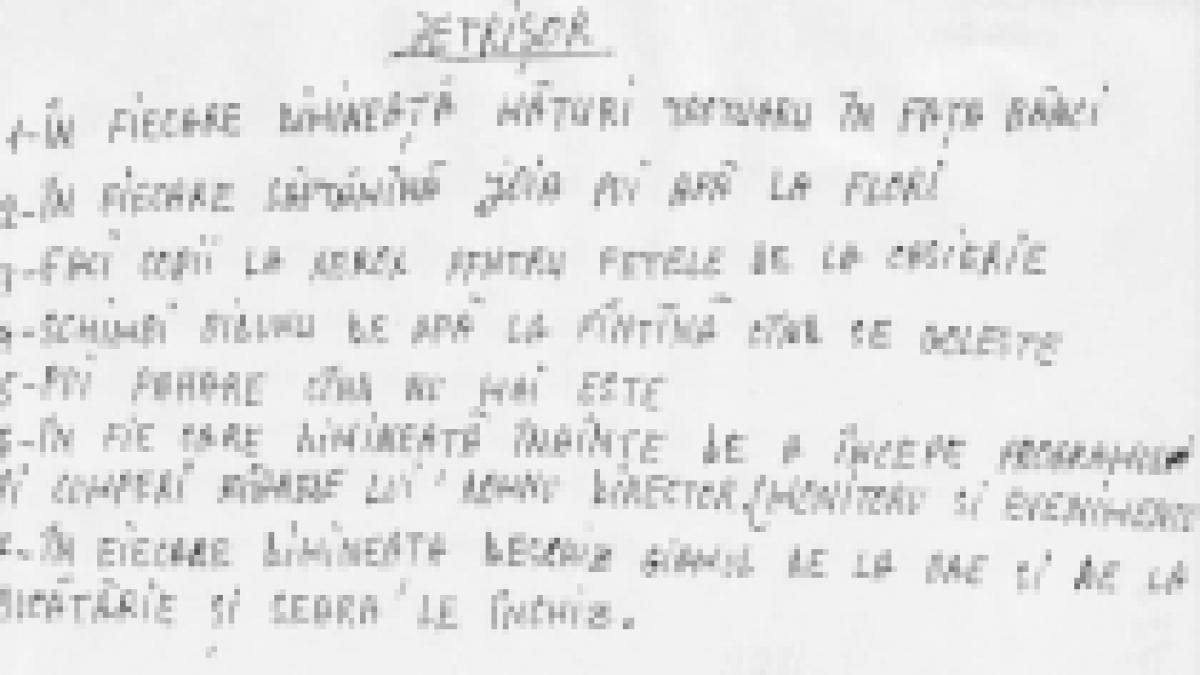 PETRIȘOR
1-ÎN FIECARE DIMINEAȚĂ MĂTURI TROTUARU ÎN FAȚA BĂNCI
2-ÎN FIECARE SĂPTĂMÎNĂ JOIA PUI APĂ LA FLORI
3-FACI COPII LA XEROX PENTRU FETELE DE LA CASIERIE
4-SCHIMBI BIDONU DE APĂ LA FÎNTÎNĂ CÎND SE GOLESTE
5-PUI PAHARE CÎND NU MAI ESTE
6-ÎN FIE CARE DIMINEATĂ ÎNAINTE DE A ÎNCEPE PROGRAMUL
CUMPERI LUI DOMNU DIRECTOR (MONITORU SI EVENIMENTU
7-ÎN FIECARE DIMINEATA DESCHIZ GEAMUL DE LA SI DE LA
BUCĂTĂRIE ȘI SEARA LE ÎNCHIZ.